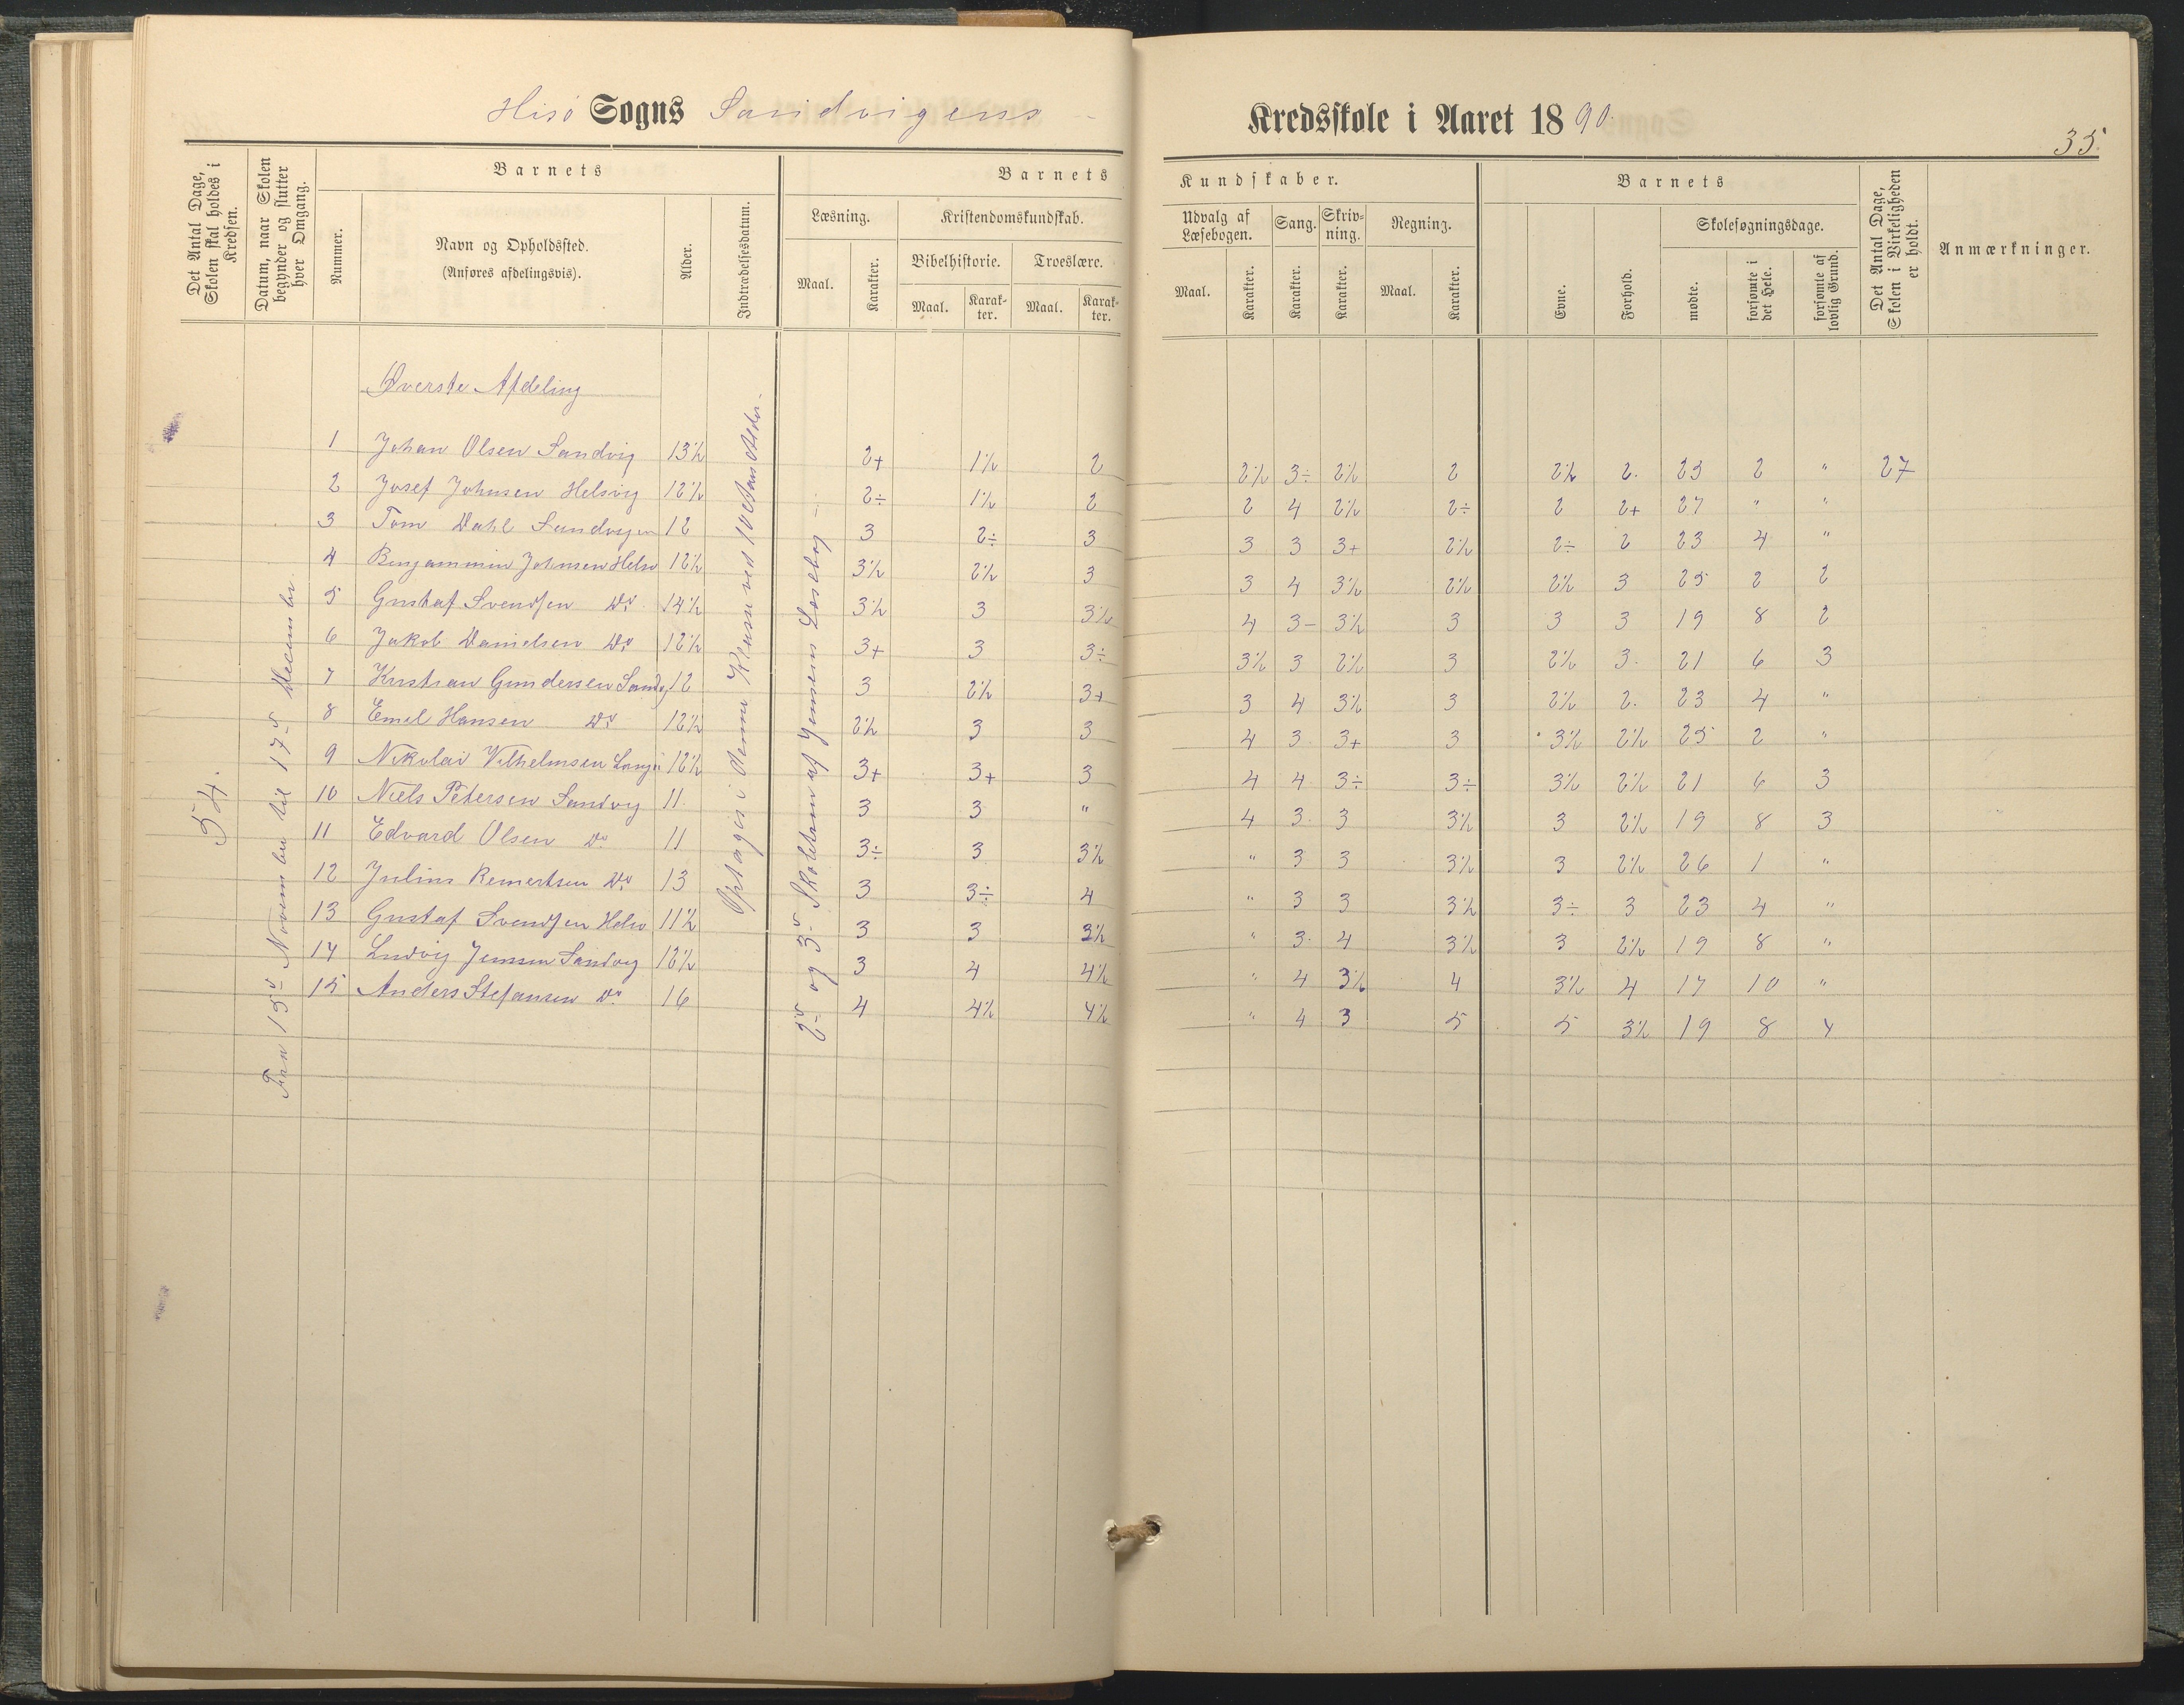 Hisø Sogns Sandvigens Kredsskole i Aaret 1890.
35.
Det Antal Dage, Skolen skal holdes i Kredsen.
Datum, naar Skolen begynder og slutter hver Omgang.
Barnets
Nummer.
Navn og Opholdssted.
(Anføres afdelingsvis).
Alder.
Indtrædelsesdatum.
Barnets Kundskaber.
Læsning.
Maal.
Karakter.
Kristendomskundskab.
Bibelhistorie.
Maal.
Karakter.
Troeslære.
Maal.
Karakter.
Udvalg af Læsebogen.
Maal.
Karakter.
Sang.
Karakter.
Skrivning.
Karakter.
Regning.
Maal.
Karakter.
Barnets
Evne.
Forhold.
Skolesøgningsdage.
mødte.
forsømte i det Hele.
forsømte af lovlig Grund.
Det Antal Dage, Skolen i Virkeligheden er holdt.
Anmærkninger.
54.
Fra 15de November til 17de December.
Optages i denne Klasse ved 10 Aars Alder.
2de og 3de Skoletrin af Jensens Læsebog
Øverste Afdeling
1 Johan Olsen Sandvig 13½ 2+ 1½ 2 2½ 3÷ 2½ 2 2½ 2. 25 2 " 27
2 Josef Johnsen Helsvig 12½ 2÷ 1½ 2 2 4 2½ 2÷ 2 2+ 27 " "
3 Tom Dahl Sandvigen 12 3 2÷ 3 3 3 3+ 2½ 2÷ 2 23 4 "
4 Benjammin Johnsen Helsv 12½ 3½ 2½ 3 3 4 3½ 2½ 2½ 3 25 2 2
5 Gustaf Svendsen Do 14½ 3½ 3 3½ 4 3- 3½ 3 3 3 19 8 2
6 Jakob Danielsen Do 12½ 3+ 3 3÷ 3½ 3 2½ 3 2½ 3. 21 6 3
7 Kristian Gundersen Sandv 12 3 2½ 3+ 3 4 3½ 3 2½ 2. 23 4 "
8 Emel Hansen Do 12½ 2½ 3 3 4 3 3+ 3 3½ 2½ 25 2 "
9 Nikolai Vilhelmsen 12½ 3+ 3+ 3 4 4 3÷ 3÷ 3½ 2½ 21 6 3
10 Niels Petersen Sandvig 11 3 3 " 4 3 3 3½ 3 2½ 19 8 3
11 Edvard Olsen Do 11 3÷ 3 3½ " 3 3 3½ 3 2½ 26 1 "
12 Julius Remertsen Do 13 3 3÷ 4 " 3 3 3½ 3÷ 3 23 4 "
13 Gustaf Svendsen Helsv 11½ 3 3 3½ " 3 4 3½ 3 2½ 19 8 "
14 Ludvig Jensen Sandvig 12½ 3 4 4½ " 4 3½ 4 3½ 4 17 10 "
15 Anders Stefansen Do 16 4 4½ 4½ " 4 3 5 5 3½ 19 8 4